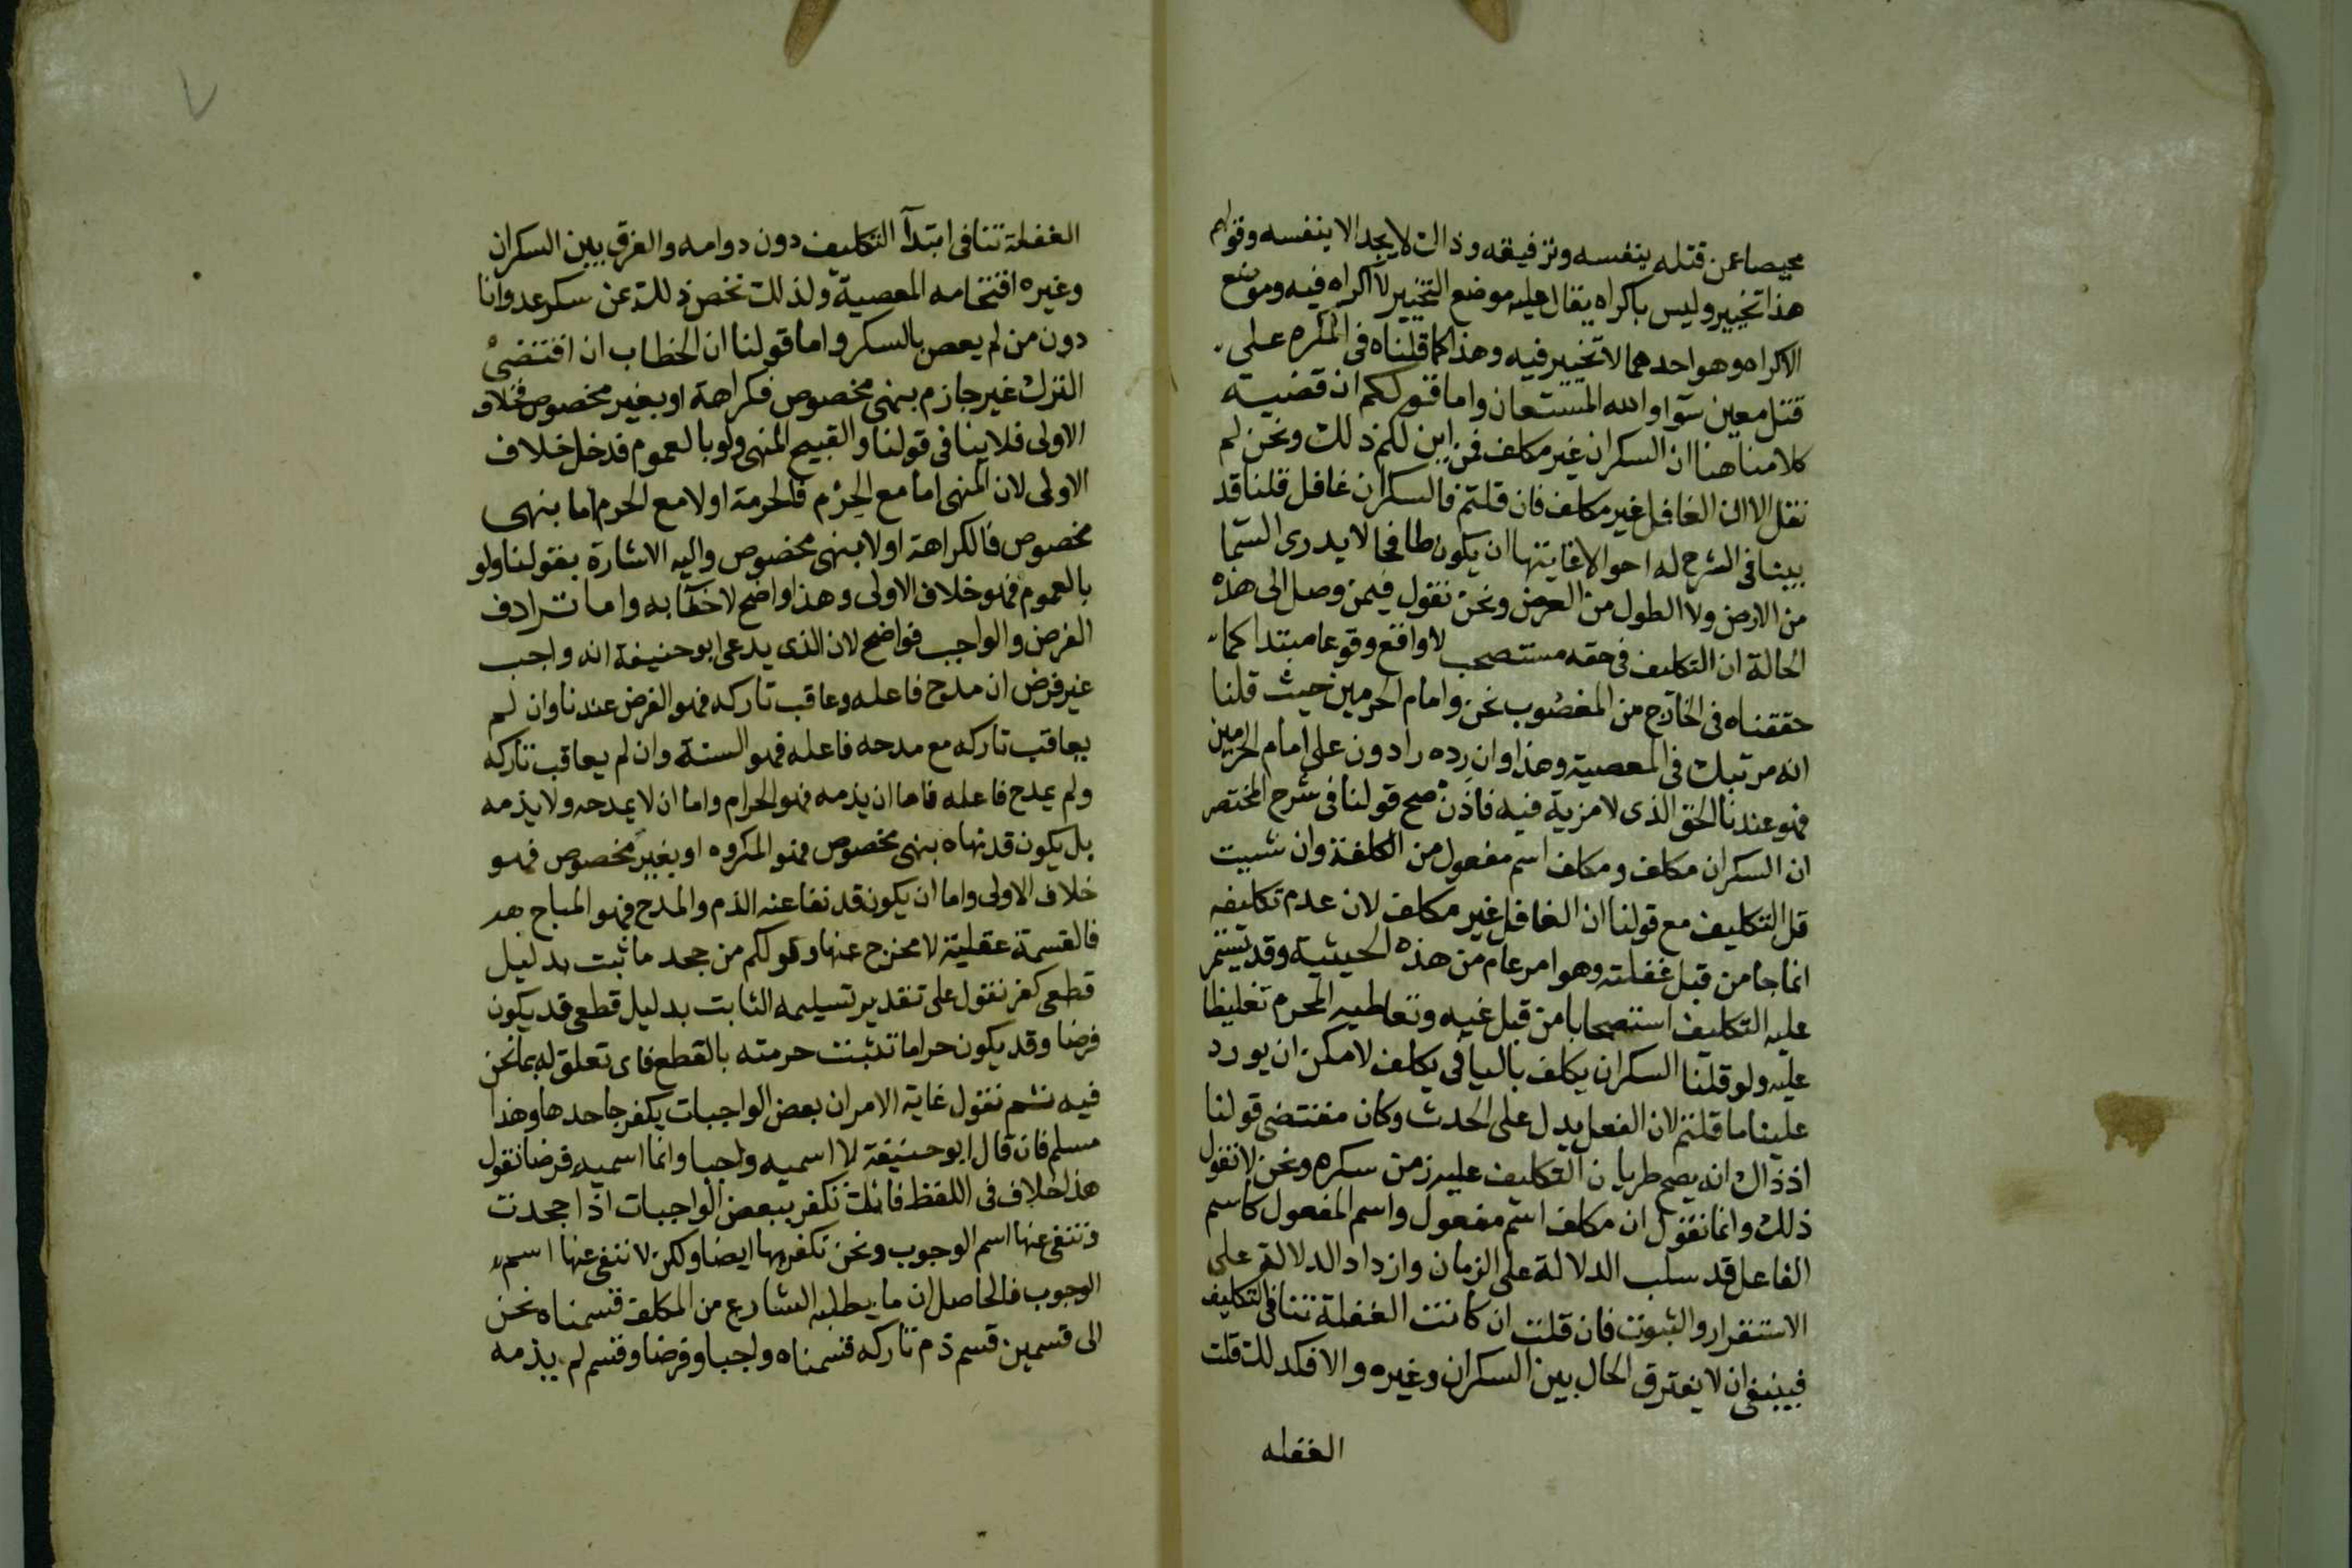 محيصا عن قتله بنفسه وتزفيقه وذاك لا يجد الا بنفسه وقولهم
هذا تخيير وليس باكراه يقال عليه موضع التخيير لا اكراه فيه وموضع
الاكراه وهو احدهما لا تخيير فيه وهذا كما قلناه في المكره على
قتل معين سوا والله المستعان واما قولكم ان قضية
كلامنا هنا ان السكران غير مكلف فمن اين لكم ذلك ونحن لم
نقل الا ان الغافل غير مكلف فان قلتم فالسكران غافل قلنا قد
بينا في الشرح له احوالا غايتها ان يكون طافحا لا يدرى السما
من الارض ولا الطول من العرض ونحن نقول فيمن وصل الى هذه
الحالة ان التكليف في حقه مستصحب لا واقع وقوعا مبتدا كما
حققناه في الخارج من المغصوب نحن وامام الحرمين حيث قلنا
انه مرتبك في المعصية وهذا وان رده رادون على امام الحرمين
فهو عندنا الحق الذى لا مزية فيه فاذن صح قولنا في شرح المختصر
ان السكران مكلف ومكلف اسم مفعول من الكلفة وان شيت
قل التكليف مع قولنا ان الغافل غير مكلف لان عدم تكليفه
انما جا من قبل غفلته وهو امر عام من هذه الحيثية وقد يستمر
عليه التكليف استصحابا من قبل غيه وتعاطيه المحرم تغليظا
عليه ولو قلنا السكران يكلف باليا في يكلف لامكن ان يورد
علينا ما قلتم لان الفعل يدل على الحدث وكان مقتضى قولنا
اذ ذاك انه يصح طريان التكليف عليه زمن سكره ونحن لا نقول
ذلك وانما نقول ان مكلف اسم مفعول واسم المفعول كاسم
الفاعل قد سلب الدلالة على الزمان وازداد الدلالة على
الاستقرار والثبوت فان قلت ان كانت الغفلة تنافى التكليف
فينبغى ان لا يفترق الحال بين السكران وغيره والا فكذلك قلت
الغفله
الغفلة تنافى ابتدآ التكليف دون دوامه والفرق بين السكران
وغيره اقتحامه المعصية ولذلك نخص ذلك عن سكر عدوانا
دون من لم يعص بالسكر واما قولنا ان الخطاب ان اقتضى
الترك غير جازم بنهى مخصوص فكراهة او بغير مخصوص فخلاف
الاولى فلا ينافى قولنا والقبيح المنهى ولو بالعموم فدخل خلاف
الاولى لان المنهى اما مع الجزم فالحرمة اولا مع الحرم اما بنهى
مخصوص فالكراهة اولا بنهى مخصوص واليه الاشارة بقولنا ولو
بالعموم فهو خلاف الاولى وهذا واضح لا خفآ به واما ترادف
الفرض والواجب فواضح لان الذى يدعى ابو حنيفة انه واجب
غير فرض ان مدح فاعله وعاقب تاركه فهو الفرض عندنا وان لم
يعاقب تاركه مع مدحه فاعله فهو السنة وان لم يعاقب تاركه
ولم يمدح فاعله فاما ان يذمه فهو الحرام واما ان لا يمدحه ولا يذمه
بل يكون قد نهاه بنهى مخصوص فهو المكروه او بغير مخصوص فهو
خلاف الاولى واما ان يكون قد نفا عنه الذم والمدح فهو المباح هد
فالقسمة عقلية لا مخرج عنها وقولكم من جحد ما ثبت بدليل
قطعى كفر نقول على تقدير تسليمه الثابت بدليل قطعى قد يكون
فرضا وقد يكون حراما تثبت حرمته بالقطع فاى تعلق له بما نحن
فيه ثم نقول غاية الامر ان بعض الواجبات يكفر جاحدها وهذا
مسلم فان قال ابو حنيفة لا اسميه واجبا وانما اسميه فرضا نقول
هذا خلاف في اللفظ فانك تكفر ببعض الواجبات اذا جحدت
وتنفى عنها اسم الوجوب ونحن نكفر بها ايضا ولكن لا ننفى عنها اسم
الوجوب فالحاصل ان ما يطلبه الشارع من المكلف قسمناه نحن
الى قسمين قسم ذم تاركه قسمناه واجبا وفرضا وقسم لم يذمه